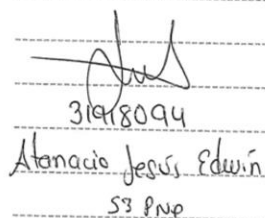 31918094
Atanacio Jesús Edwin
S3 PNP